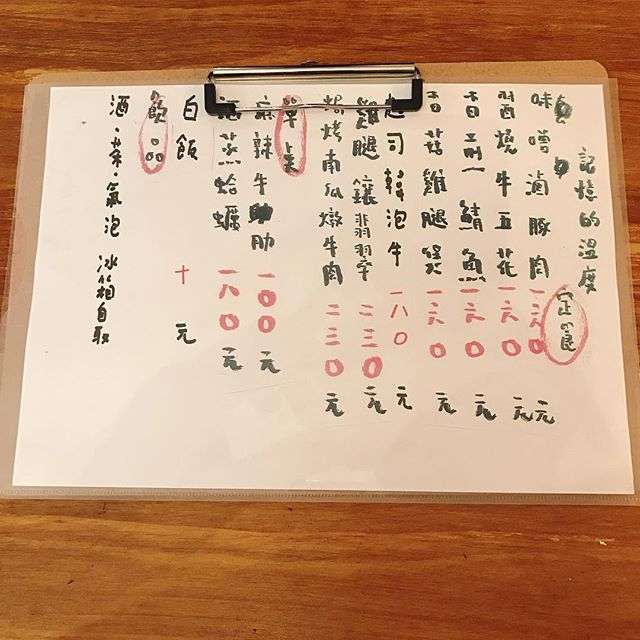 記憶的溫度
定食
味噌滷豚肉 一六〇元
醬燒牛五花 一六〇元
香煎鯖魚 一六〇元
香菇雞腿煲 一六〇元
起司韓泡牛 一八〇元
雞腿鑲翡翠 二三〇元
焗烤南瓜燉牛肉 二三〇元
單點
麻辣牛肋 一〇〇元
清蒸蛤蠣 一八〇元
白飯 十元
飲品
酒·茶·氣泡 冰箱自取